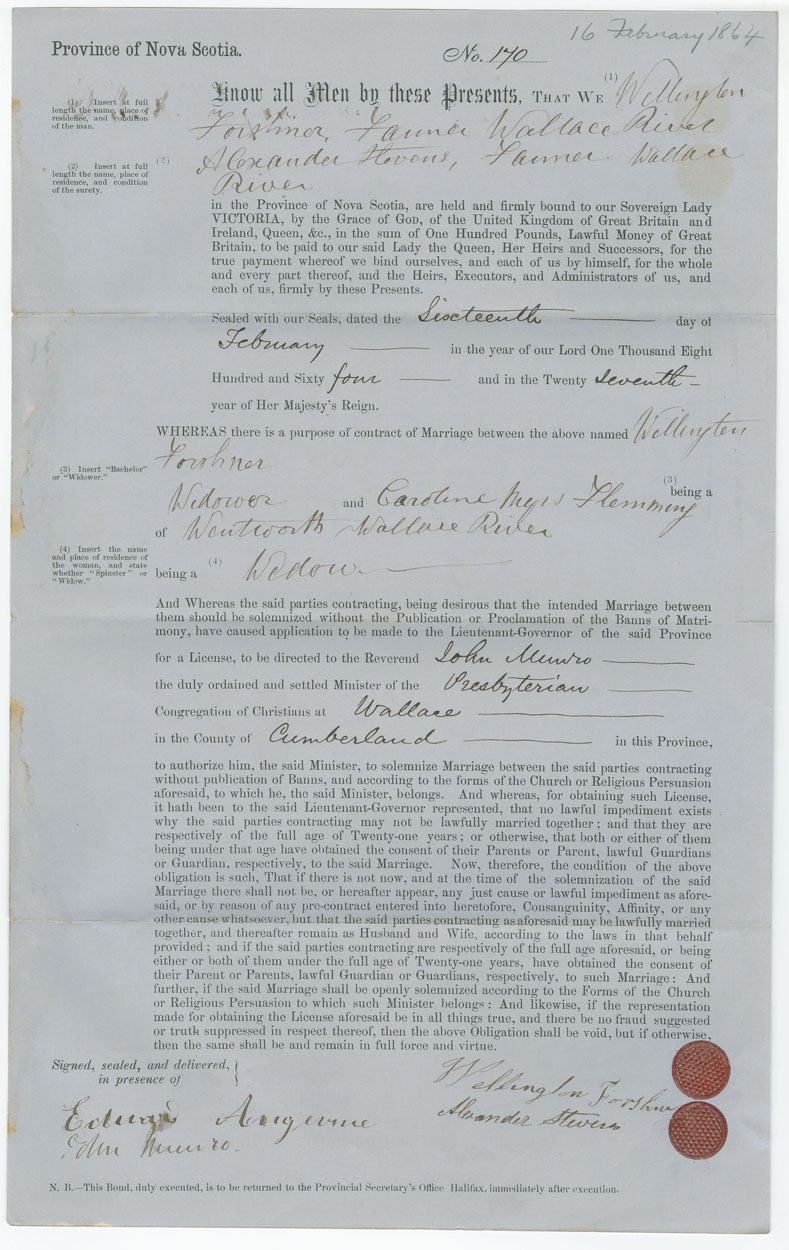 16 February 1864
Province of Nova Scotia.
No. 170
Know all Men by these Presents, THAT WE (1) Wellington
Forshner, Farmer Wallace River
(2) Alexander Stevens, Farmer. Wallace
River
(1) Insert at full
length the name, place of
residence, and condition
of the man.
(2) Insert at full
length the name, place of
residence, and condition
of the surety.
in the Province of Nova Scotia, are held and firmly bound to our Sovereign Lady
VICTORIA, by the Grace of GOD, of the United Kingdom of Great Britain and
Ireland, Queen, &c., in the sum of One Hundred Pounds, Lawful Money of Great
Britain, to be paid to our said Lady the Queen, Her Heirs and Successors, for the
true payment whereof we bind ourselves, and each of us by himself, for the whole
and every part thereof, and the Heirs, Executors, and Administrators of us, and
each of us, firmly by these Presents.
Sealed with our Seals, dated the Sixteenth day of
February in the year of our Lord One Thousand Eight
Hundred and Sixty four and in the Twenty seventh
year of Her Majesty's Reign.
WHEREAS there is a purpose of contract of Marriage between the above named Wellington
Forshner
(3) being a
(3) Insert "Bachelor"
or "Widower."
Widower and Caroline Flemming
of Wentworth Wallace River
being a (4) Widow.
(4) Insert the name
and place of residence of
the woman, and state
whether "Spinster" or
"Widow."
And Whereas the said parties contracting, being desirous that the intended Marriage between
them should be solemnized without the Publication or Proclamation of the Banns of Matri-
mony, have caused application to be made to the Lieutenant-Governor of the said Province
for a License, to be directed to the Reverend John Munro
the duly ordained and settled Minister of the Presbyterian
Congregation of Christians at Wallace
in the County of Cumberland in this Province,
to authorize him, the said Minister, to solemnize Marriage between the said parties contracting
without publication of Banns, and according to the forms of the Church or Religious Persuasion
aforesaid, to which he, the said Minister, belongs. And whereas, for obtaining such License,
it hath been to the said Lieutenant-Governor represented, that no lawful impediment exists
why the said parties contracting may not be lawfully married together; and that they are
respectively of the full age of Twenty-one years; or otherwise, that both or either of them
being under that age have obtained the consent of their Parents or Parent, lawful Guardians
or Guardian, respectively, to the said Marriage. Now, therefore, the condition of the above
obligation is such, That if there is not now, and at the time of the solemnization of the said
Marriage there shall not be, or hereafter appear, any just cause or lawful impediment as afore-
said, or by reason of any pre-contract entered into heretofore, Consanguinity, Affinity, or any
other cause whatsoever, but that the said parties contracting as aforesaid may be lawfully married
together, and thereafter remain as Husband and Wife, according to the laws in that behalf
provided; and if the said parties contracting are respectively of the full age aforesaid, or being
either or both of them under the full age of Twenty-one years, have obtained the consent of
their Parent or Parents, lawful Guardian or Guardians, respectively, to such Marriage: And
further, if the said Marriage shall be openly solemnized according to the Forms of the Church
or Religious Persuasion to which such Minister belongs: And likewise, if the representation
made for obtaining the License aforesaid be in all things true, and there be no fraud suggested
or truth suppressed in respect thereof, then the above Obligation shall be void, but if otherwise,
then the same shall be and remain in full force and virtue.
Signed, sealed, and delivered,
in presence of
Wellington Forshner
Alexander Stevens
Angevine
John Munro.
N. B.—This Bond, duly executed, is to be returned to the Provincial Secretary's Office Halifax, immediately after execution.